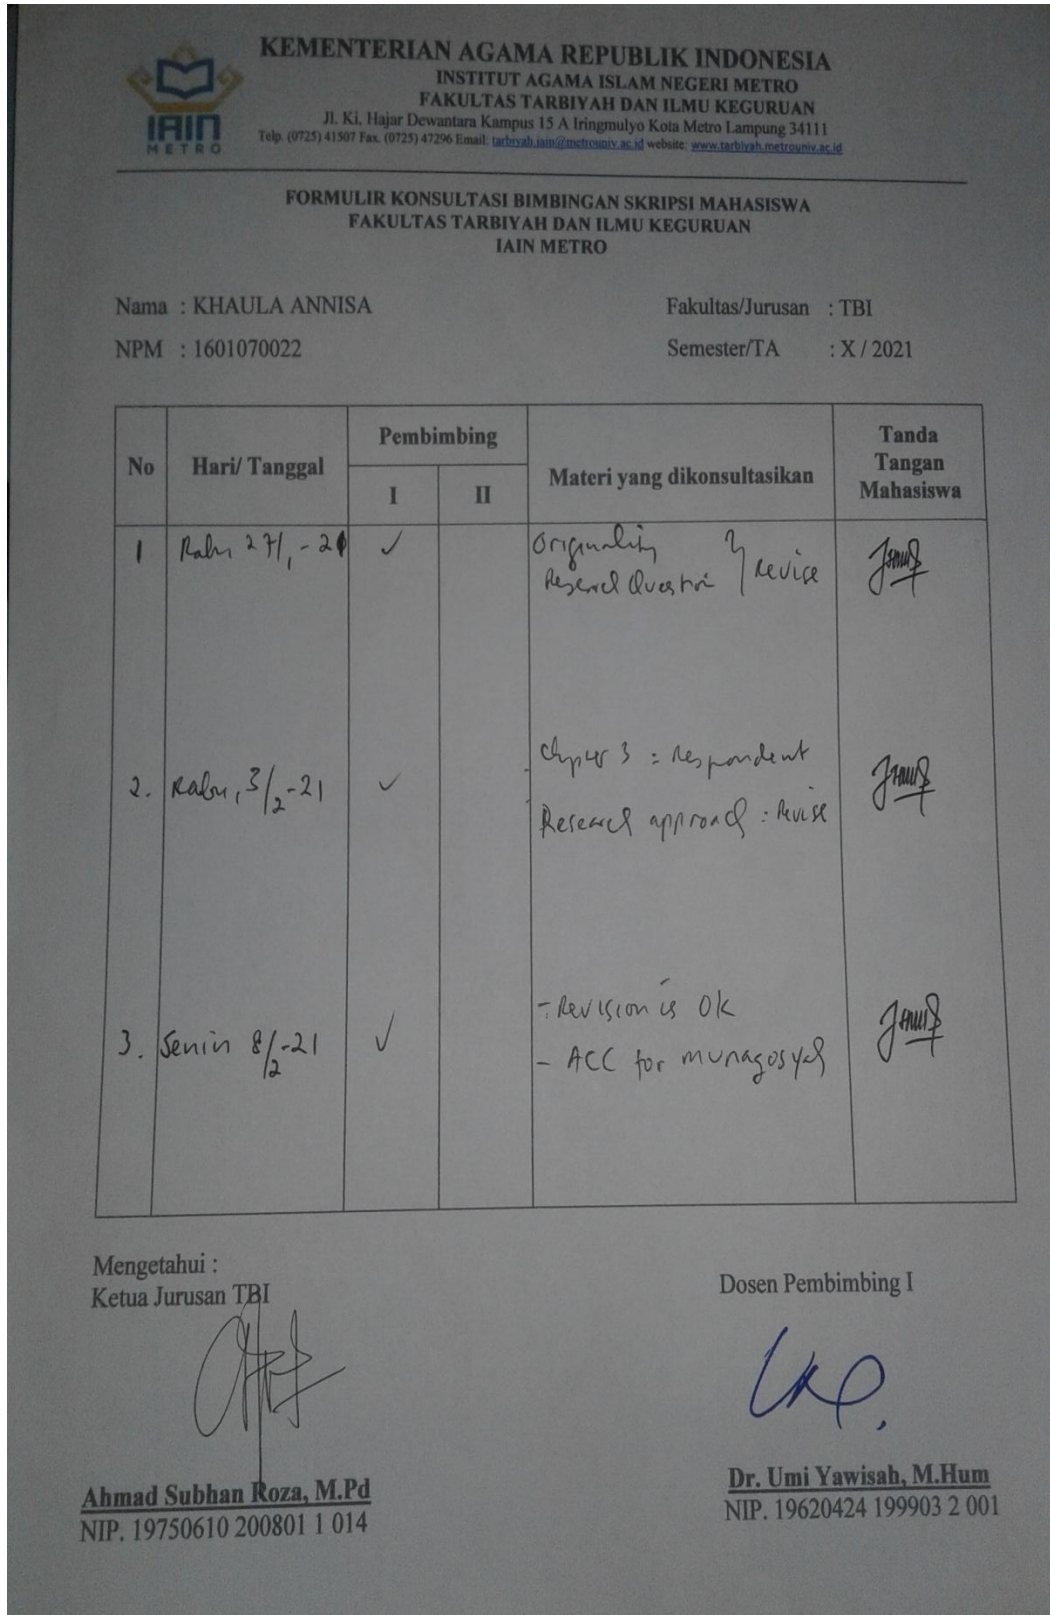 IAIN
METRO
KEMENTERIAN AGAMA REPUBLIK INDONESIA
INSTITUT AGAMA ISLAM NEGERI METRO
FAKULTAS TARBIYAH DAN ILMU KEGURUAN
Jl. Ki. Hajar Dewantara Kampus 15 A Iringmulyo Kota Metro Lampung 34111
Telp. (0725) 41507 Fax. (0725) 47296 Email: tarbiyah.iain@metrouniv.ac.id website: www.tarbiyah.metrouniv.ac.id
FORMULIR KONSULTASI BIMBINGAN SKRIPSI MAHASISWA
FAKULTAS TARBIYAH DAN ILMU KEGURUAN
IAIN METRO
Nama : KHAULA ANNISA Fakultas/Jurusan : TBI
NPM : 1601070022 Semester/TA : X / 2021
No Hari/ Tanggal Pembimbing Materi yang dikonsultasikan Tanda Tangan Mahasiswa
I II
1 Rabu 27/1 - 21 ✓ Originality
Research Question } Revise
2. Rabu, 3/2-21 ✓ Chapter 3 : Respondent
Research approach : Revise
3. Senin 8/2-21 ✓ - Revision is OK
- ACC for munaqosyah
Mengetahui :
Ketua Jurusan TBI
Dosen Pembimbing I
Ahmad Subhan Roza, M.Pd
NIP. 19750610 200801 1 014
Dr. Umi Yawisah, M.Hum
NIP. 19620424 199903 2 001